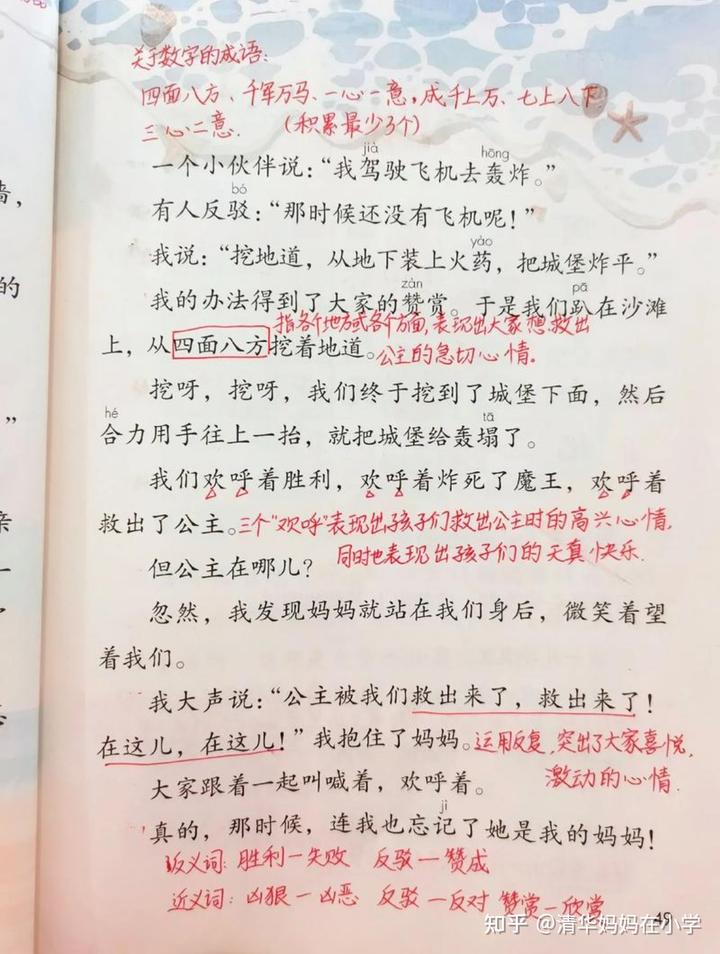 关于数字的成语:
四面八方、千军万马、一心一意,成千上万、七上八下
三心二意. (积累最少3个)
jià hōng
一个小伙伴说:“我驾驶飞机去轰炸。”
bó
有人反驳:“那时候还没有飞机呢!”
yào
我说:“挖地道,从地下装上火药,把城堡炸平。”
zàn pā
我的办法得到了大家的赞赏。于是我们趴在沙滩
指各个地方或各个方面,表现出大家想救出
上,从四面八方挖着地道。公主的急切心情。
挖呀,挖呀,我们终于挖到了城堡下面,然后
hé tā
合力用手往上一抬,就把城堡给轰塌了。
我们欢呼着胜利,欢呼着炸死了魔王,欢呼着
救出了公主。三个“欢呼”表现出孩子们救出公主时的高兴心情,
同时也表现出孩子们的天真快乐.
但公主在哪儿?
忽然,我发现妈妈就站在我们身后,微笑着望
着我们。
我大声说:“公主被我们救出来了,救出来了!
在这儿,在这儿!”我抱住了妈妈。运用反复,突出了大家喜悦,
激动的心情.
大家跟着一起叫喊着,欢呼着。
jì
真的,那时候,连我也忘记了她是我的妈妈!
反义词: 胜利一失败 反驳一赞成
近义词: 凶狠一凶恶 反驳一反对 赞赏一欣赏
49
知乎 @清华妈妈在小学